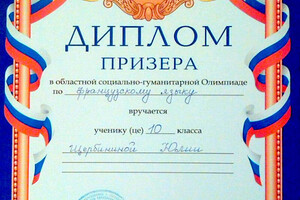 ДИПЛОМ
ПРИЗЕРА
в областной социально-гуманитарной Олимпиаде
по французскому языку
вручается
ученику (це) 10 класса
Щербининой Юлии